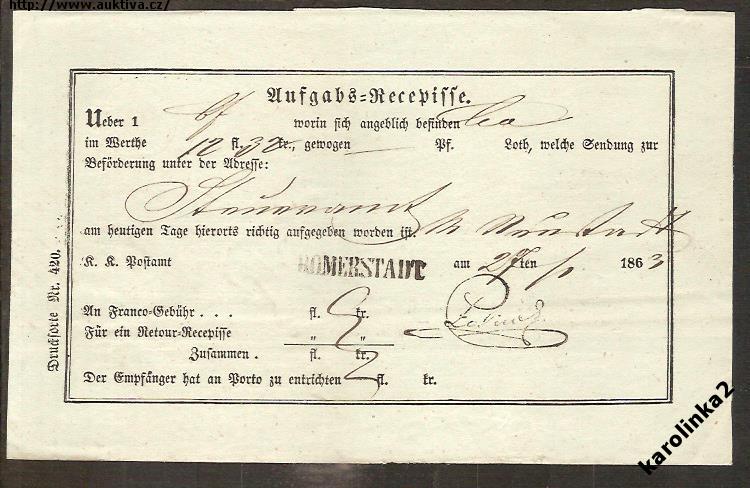 http://www.auktiva.cz/
Aufgabs=Recepisse.
Ueber 1 Bf worin sich angeblich befinden
im Werthe 12 fl. 32 kr., gewogen — Pf. Loth, welche Sendung zur
Beförderung unter der Adresse:
Steueramt M Neustadt
am heutigen Tage hierorts richtig aufgegeben worden ist.
K. K. Postamt RÖMERSTADT am 27ten /1 1863
An Franco=Gebühr . . . fl. kr.
Für ein Retour=Recepisse " "
Zusammen . fl. kr.
Der Empfänger hat an Porto zu entrichten fl. kr.
Drucksorte Nr. 420.
karolinka2